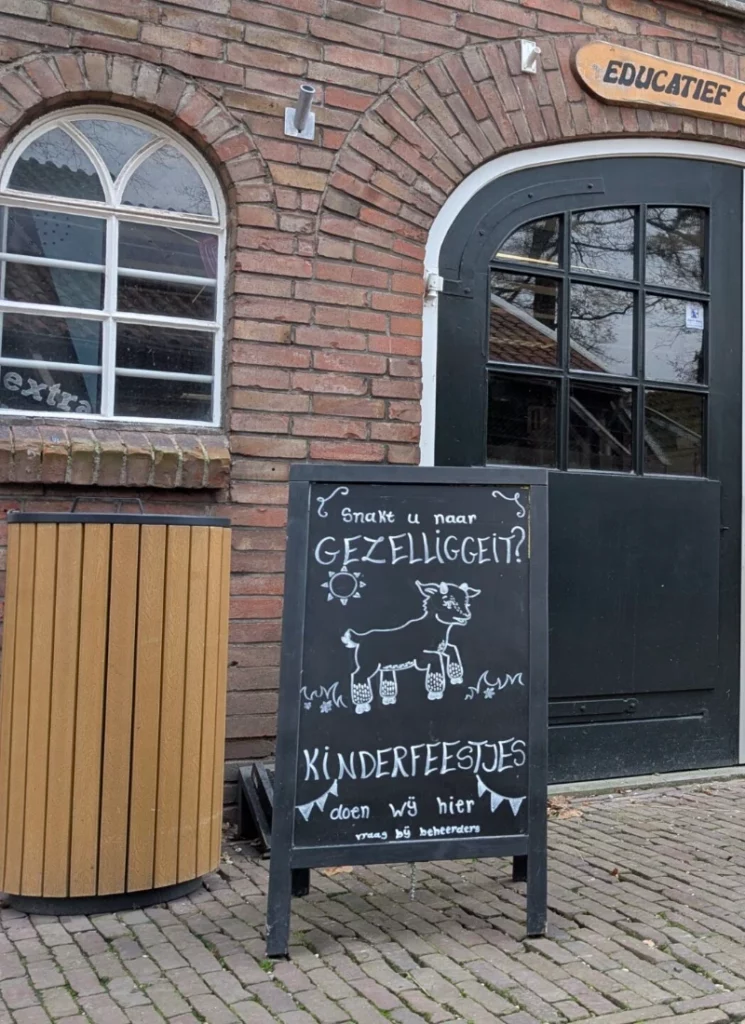 EDUCATIEF
extra
Snakt u naar
GEZELLIGGEIT?
KINDERFEESTJES
doen wij hier
vraag bij beheerders